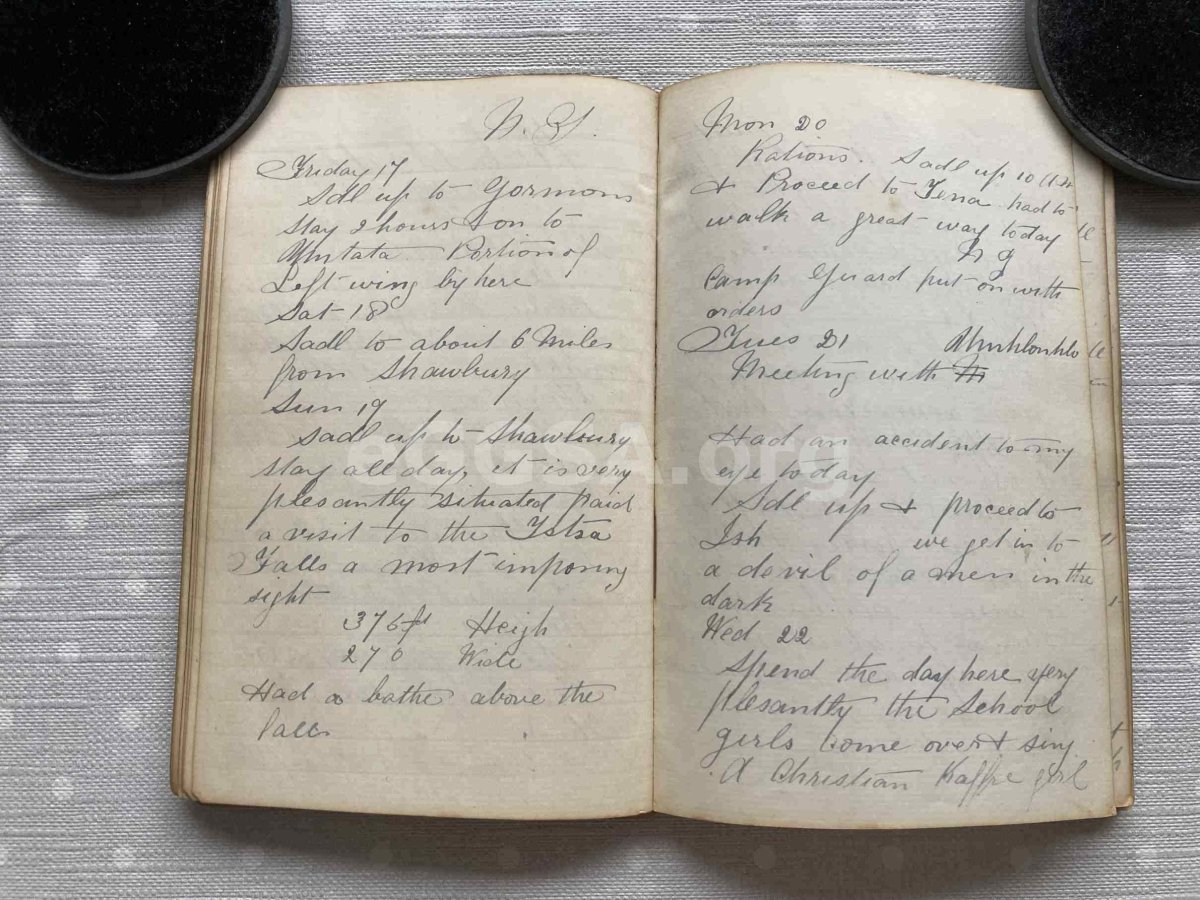 Friday 17
Sdl up to Gormons
stay 2 hours & on to
Umtata Portion of
Left wing by here
Sat 18
Sadl to about 6 Miles
from Shawbury
Sun 19
Sadl up to Shawbury
stay all day, it is very
plesantly situated paid
a visit to the Tstsa
Falls a most imposing
sight
376 ft Heigh
270 Wide
Had a bathe above the
Mon 20
Rations. Sadl up 10 am
& Proceed to Tena had to
walk a great way today
N G
Camp Guard put on with
orders
Tues 21 Umhlonhlo
Meeting with
Had an accident to my
eye today
Sdl up & proceed to
Ish we get in to
a devil of a mess in the
dark
Wed 22
Spend the day here very
plesantly the School
girls come over & sing
A Christian Kaffre girl
eGGSA.org